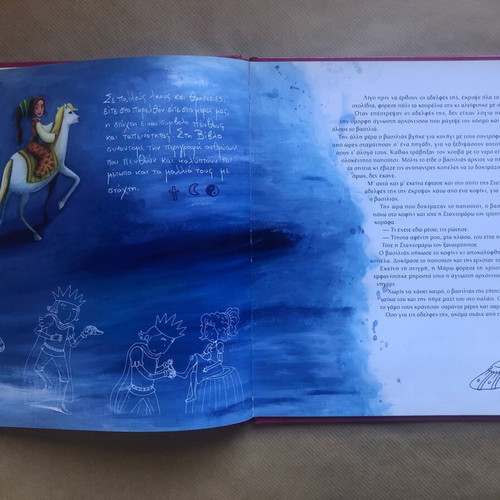 Σε πολλούς λαούς και θρησκείες,
είτε στο παρελθόν είτε στις μέρες μας,
η στάχτη είναι σύμβολο πένθους
και ταπεινότητας. Στη Βίβλο
συναντάμε την περιγραφή ανθρώπων
που πενθούν και καλύπτουν το
μέτωπο και τα μαλλιά τους με
στάχτη.
Λίγο πριν να έρθουν οι αδελφές της, έκρυψε όλα τα
στολίδια, φόρεσε πάλι τα κουρέλια της κι αλείφτηκε με
Όταν επέστρεψαν οι αδελφές της, δεν είχαν λόγια
την όμορφη άγνωστη αρχόντισσα που μάγεψε τον κόσμο
όλους το βασιλιά.
Την άλλη μέρα ο βασιλιάς βγήκε για κυνήγι με τους
από ώρες σταμάτησαν σ' ένα πηγάδι, για να ξεδιψάσουν
σουν τ' άλογά τους. Καθώς τράβηξαν τον κουβά με το νερό
ολοκέντητο παπούτσι. Μόλις το είδε ο βασιλιάς άρχισε να
τα σπίτια κι έβαζε τις ανύπαντρες κοπέλες να το δοκιμάζουν
όμως, δεν έκανε.
Μ' αυτά και μ' εκείνα έφτασε και στο σπίτι της
της και οι αδελφές της την έκρυψαν κάτω από ένα κοφίνι, για
ο βασιλιάς.
Την ώρα που δοκίμαζαν το παπούτσι, ο βασιλιάς
πάνω στο κοφίνι και τότε η Σταχτομάρω τον
κοράφα της.
— Τι έχετε εδώ μέσα; τις ρώτησε.
— Τίποτα αφέντη μου, μια κλώσα, του είπε η
Τότε η Σταχτομάρω τον ξανατρύπησε.
Ο βασιλιάς σήκωσε το κοφίνι κι αποκαλύφθηκε
κοπέλα. Δοκίμασε το παπούτσι και της ερχόταν
Εκείνη τη στιγμή, η Μάρω φόρεσε τη χρυσή
εμφανίστηκε μπροστά τους η άγνωστη αρχόντισσα
πηγάδι.
Χωρίς να χάσει καιρό, ο βασιλιάς της ζήτησε
ναίκα του και την πήρε μαζί του στο παλάτι.
το γάμο τους κράτησαν σαράντα μέρες και σαράντα
Όσο για τις αδελφές της, ακόμα σκάνε από